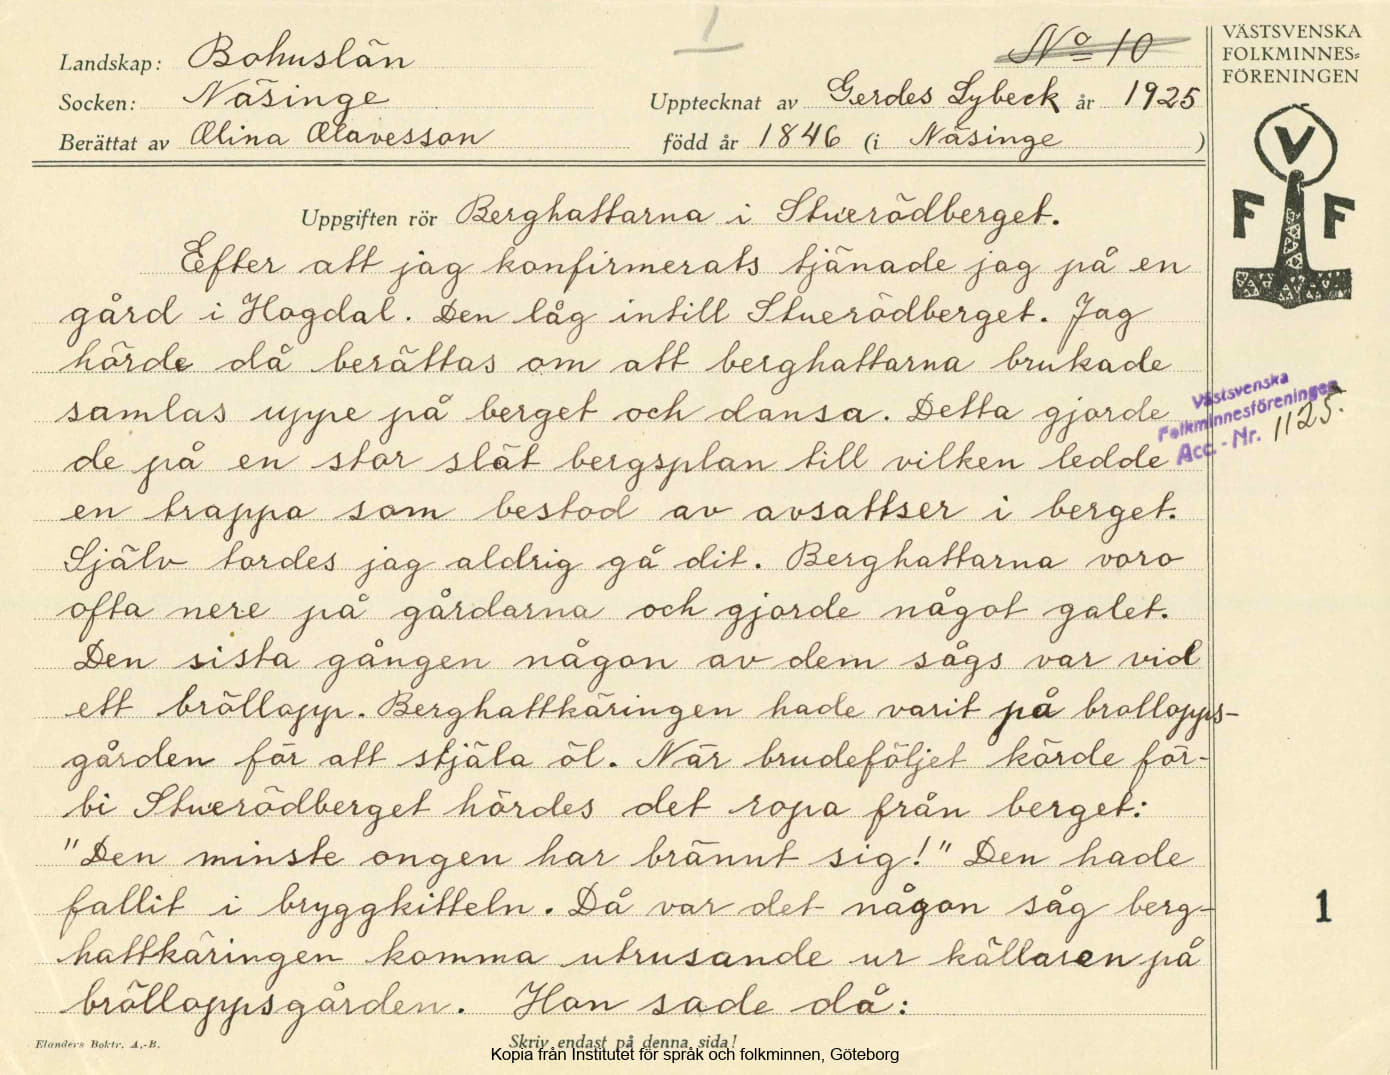 1
No 10
Landskap: Bohuslän
Socken: Näsinge
Upptecknat av Gerdes Lybeck år 1925
Berättat av Olina Olavesson
född år 1846 (i Näsinge )
VÄSTSVENSKA
FOLKMINNES=
FÖRENINGEN
V
F F
Uppgiften rör Berghattarna i Stuerödberget.
Efter att jag konfirmerats tjänade jag på en
gård i Hogdal. Den låg intill Stuerödberget. Jag
hörde då berättas om att berghattarna brukade
samlas uppe på berget och dansa. Detta gjorde
de på en stor slät bergsplan till vilken ledde
en trappa som bestod av avsattser i berget.
Själv tordes jag aldrig gå dit. Berghattarna voro
ofta nere på gårdarna och gjorde något galet.
Den sista gången någon av dem sågs var vid
ett bröllopp. Berghattkäringen hade varit på brollopps-
gården för att stjäla öl. När brudeföljet körde för-
bi Stuerödberget hördes det ropa från berget:
"Den minste ongen har brännt sig!" Den hade
fallit i bryggkitteln. Då var det någon såg berg-
hattkäringen komma utrusande ur källaren på
brölloppsgården. Hon sade då:
Västsvenska
Folkminnesföreningen
Acc.-Nr. 1125.
1
Elanders Boktr. A.-B.
Skriv endast på denna sida!
Kopia från Institutet för språk och folkminnen, Göteborg